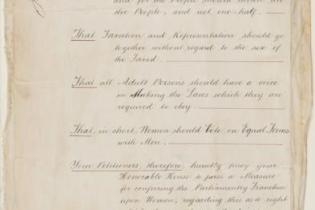 and for the People should mean all
the People, and not one-half.
That Taxation and Representation should go
together without regard to the sex of
the Taxed.
That all Adult Persons should have a voice
in Making the Laws which they are
required to obey.
That, in short, Women should Vote on Equal terms
with Men.
Your Petitioners, therefore, humbly pray your
Honorable House to pass a Measure
for conferring the Parliamentary Franchise
upon Women, regarding this as a right